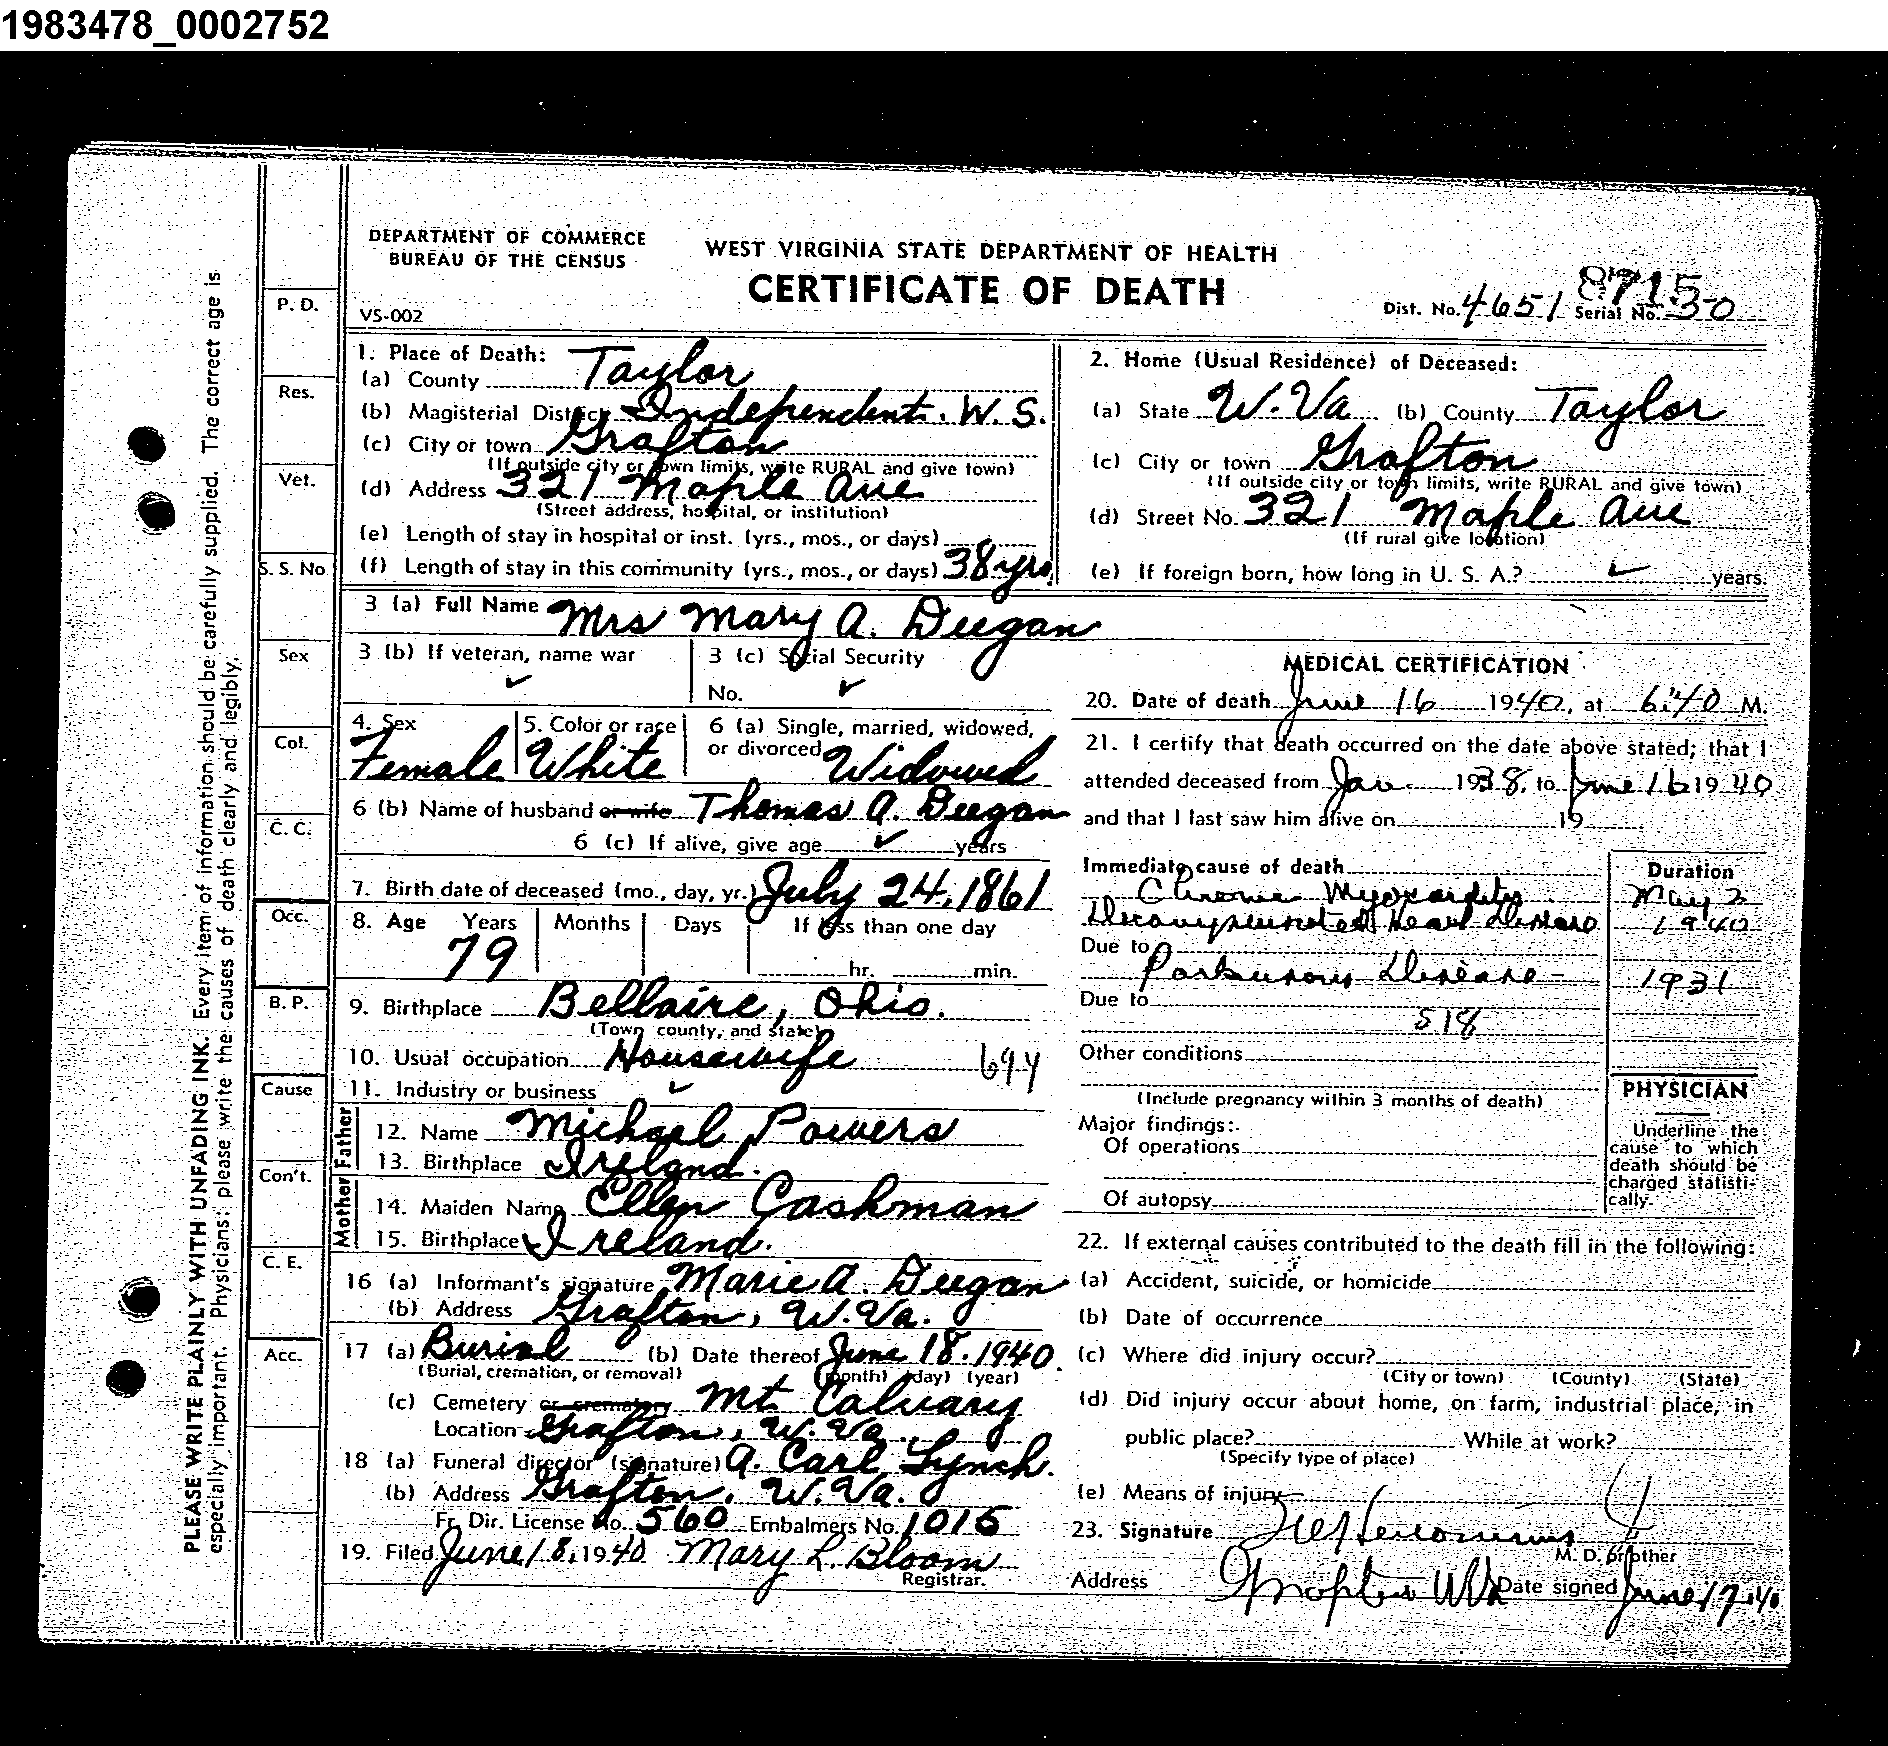 1983478_0002752
DEPARTMENT OF COMMERCE
BUREAU OF THE CENSUS
WEST VIRGINIA STATE DEPARTMENT OF HEALTH
CERTIFICATE OF DEATH
VS-002
8715
Dist. No. 4651 Serial No. 30
1. Place of Death:
(a) County Taylor
(b) Magisterial District Independent. W.S.
(c) City or town Grafton
(If outside city or town limits, write RURAL and give town)
(d) Address 321 Maple Ave
(Street address, hospital, or institution)
(e) Length of stay in hospital or inst. (yrs., mos., or days)
(f) Length of stay in this community (yrs., mos., or days) 38 yrs.
2. Home (Usual Residence) of Deceased:
(a) State W.Va (b) County Taylor
(c) City or town Grafton
(If outside city or town limits, write RURAL and give town)
(d) Street No. 321 Maple Ave
(If rural give location)
(e) If foreign born, how long in U. S. A.? ✓ years.
3 (a) Full Name Mrs Mary A. Deegan
3 (b) If veteran, name war ✓
3 (c) Social Security
No. ✓
4. Sex Female
5. Color or race White
6 (a) Single, married, widowed,
or divorced Widowed
6 (b) Name of husband or wife Thomas A. Deegan
6 (c) If alive, give age ✓ years
7. Birth date of deceased (mo., day, yr.) July 24, 1861
8. Age Years Months Days If less than one day
79 hr. min.
9. Birthplace Bellaire, Ohio.
(Town county, and state)
10. Usual occupation Housewife 694
11. Industry or business ✓
Father
12. Name Michael Powers
13. Birthplace Ireland.
Mother
14. Maiden Name Ellen Cashman
15. Birthplace Ireland.
16 (a) Informant's signature Marie A. Deegan
(b) Address Grafton, W.Va.
17 (a) Burial (b) Date thereof June 18. 1940.
(Burial, cremation, or removal) (month) (day) (year)
(c) Cemetery or crematory Mt Calvary
Location Grafton, W.Va.
18 (a) Funeral director (signature) A. Carl Lynch.
(b) Address Grafton, W.Va.
Fr. Dir. License No. 560 Embalmers No. 1015
19. Filed June 18, 1940 Mary L. Bloom
Registrar.
MEDICAL CERTIFICATION
20. Date of death June 16 1940, at 6:40 M.
21. I certify that death occurred on the date above stated; that I
attended deceased from Jan. 1938, to June 16 1940
and that I last saw him alive on 19
Immediate cause of death Duration
Chronic Myocarditis May 2
Decompensated Heart Disease 1940
Due to
Parkinsons Disease - 1931
Due to
518
Other conditions
(Include pregnancy within 3 months of death)
Major findings:
Of operations
Of autopsy
PHYSICIAN
Underline the
cause to which
death should be
charged statisti-
cally.
22. If external causes contributed to the death fill in the following:
(a) Accident, suicide, or homicide
(b) Date of occurrence
(c) Where did injury occur?
(City or town) (County) (State)
(d) Did injury occur about home, on farm, industrial place, in
public place? While at work?
(Specify type of place)
(e) Means of injury
23. Signature
M. D. or other
Address Grafton W Va Date signed June 17, 40
P. D.
Res.
Vet.
S. S. No
Sex
Col.
C. C.
Occ.
B. P.
Cause
Con't.
C. E.
Acc.
PLEASE WRITE PLAINLY WITH UNFADING INK. Every item of information should be carefully supplied. The correct age is
especially important. Physicians: please write the causes of death clearly and legibly.